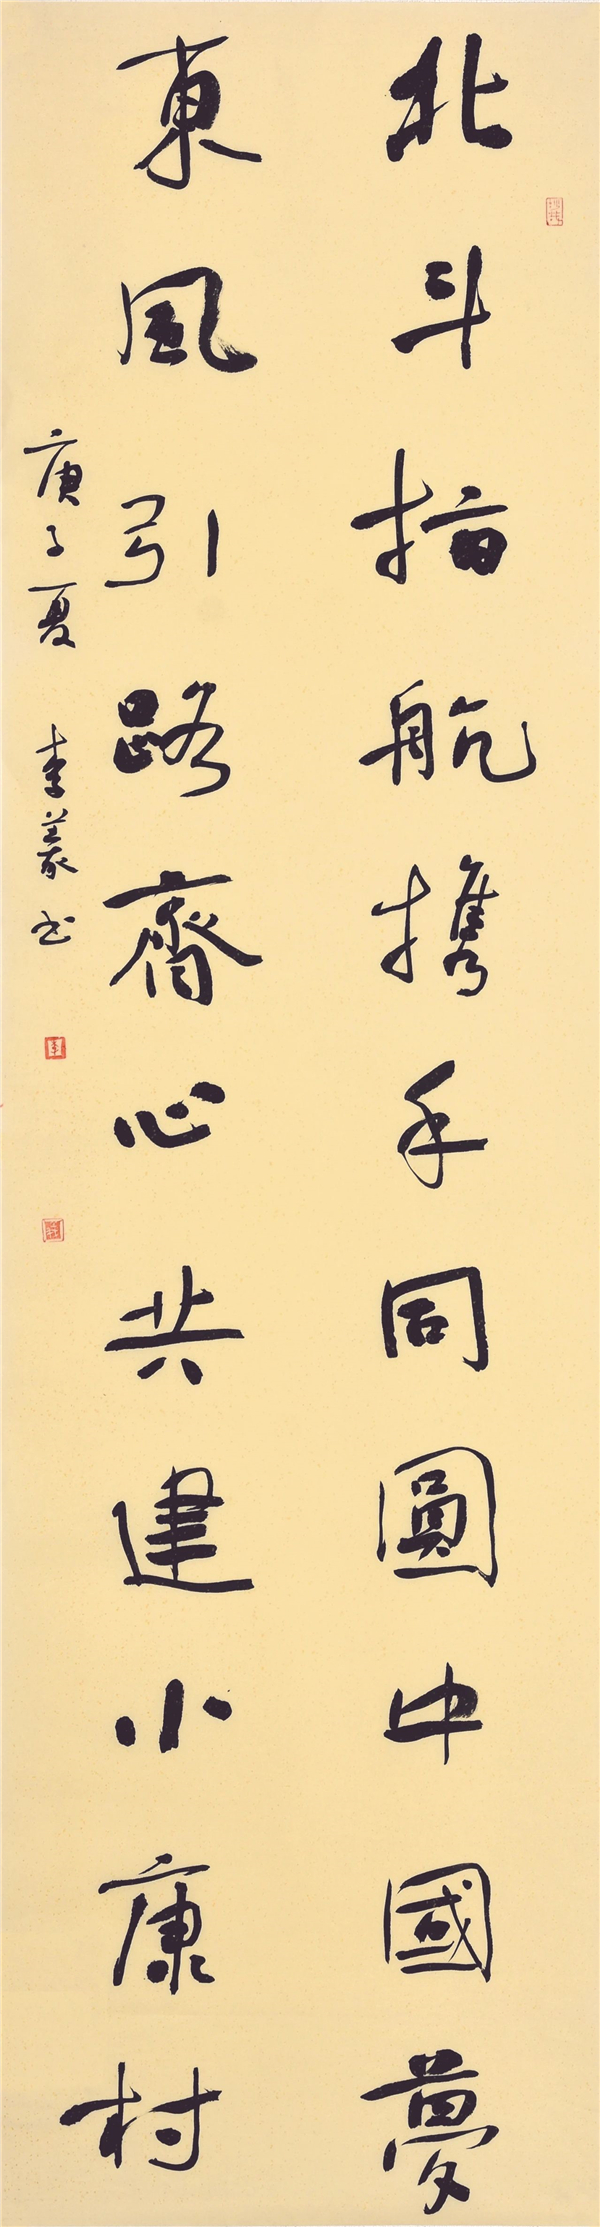 北斗指航携手同圓中國夢
東風引路齊心共建小康村
庚子夏 李羲书